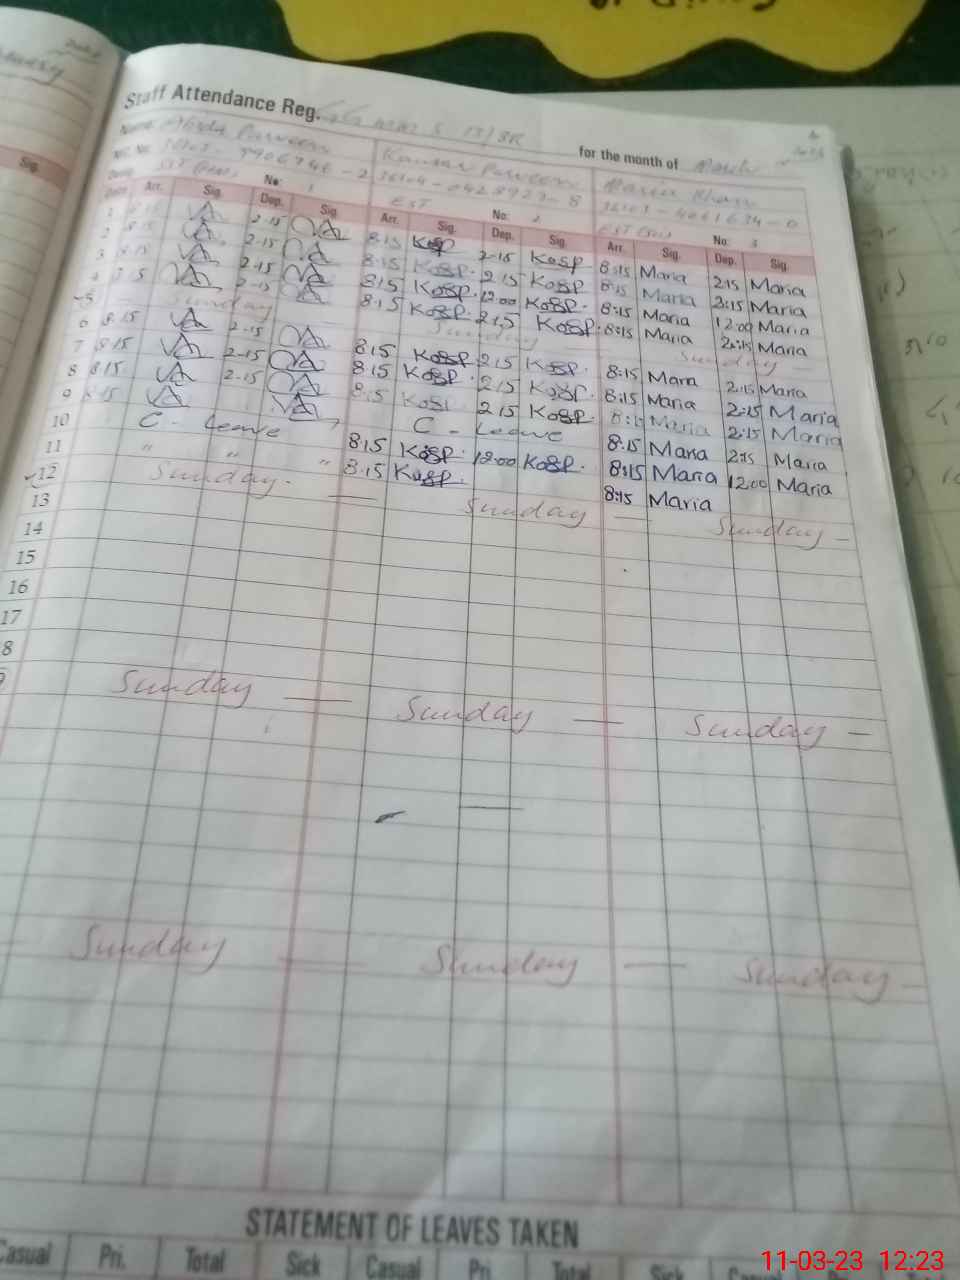 Staff Attendance Reg. for the month of March
Name Parveen Kausar Parveen Maria Khan
NIC. No. 36104-0428927-8
EST
Date Arr. Sig. Dep. Sig. No: 1 Arr. Sig. Dep. Sig. No: 2 Arr. Sig. Dep. Sig. No: 3
1 8.15 2-15 8.15 Kosp 2.15 Kosp 8:15 Maria 2:15 Maria
2 8.15 2-15 8.15 Kosp. 2.15 Kosp 8:15 Maria 2:15 Maria
3 8.15 2-15 8.15 Kosp. 12.00 Kosp. 8:15 Maria 12:00 Maria
4 8.15 2-15 8.15 Kosp. 2.15 Kosp. 8:15 Maria 2:15 Maria
5 Sunday Sunday Sunday
6 8.15 2-15 8.15 Kosp. 2.15 Kosp. 8:15 Maria 2:15 Maria
7 8.15 2-15 8.15 Kosp. 2.15 Kosp. 8:15 Maria 2:15 Maria
8 8.15 2-15 8.15 Kosp. 2.15 Kosp. 8:15 Maria 2:15 Maria
9 8.15 C - Leave 8:15 Maria 2:15 Maria
10 C - Leave 8.15 Kosp. 12.00 Kosp. 8:15 Maria 12:00 Maria
11 " " " 8.15 Kosp. 8:15 Maria
12 Sunday. — Sunday — Sunday —
13
14
15
16
17
8
Sunday — Sunday — Sunday —
Sunday — Sunday — Sunday —
STATEMENT OF LEAVES TAKEN
Casual Pri. Total Sick Casual Pri Total Sick
11-03-23 12:23